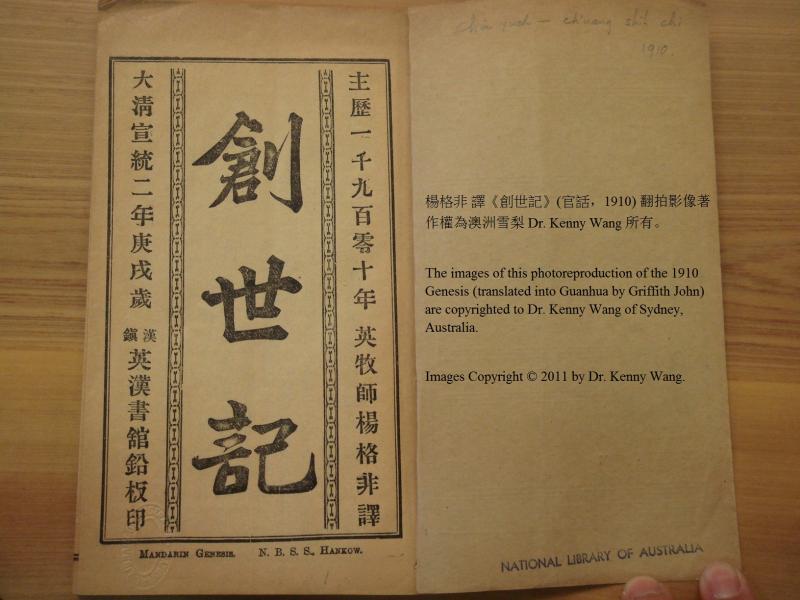 主歷一千九百零十年 英牧師楊格非譯
創世記
大淸宣統二年庚戌歲 漢鎭 英漢書舘鉛板印
MANDARIN GENESIS. N. B. S. S., HANKOW.
ch'uang shih chi
1910.
楊格非 譯《創世記》(官話，1910) 翻拍影像著
作權為澳洲雪梨 Dr. Kenny Wang 所有。
The images of this photoreproduction of the 1910
Genesis (translated into Guanhua by Griffith John)
are copyrighted to Dr. Kenny Wang of Sydney,
Australia.
Images Copyright © 2011 by Dr. Kenny Wang.
NATIONAL LIBRARY OF AUSTRALIA